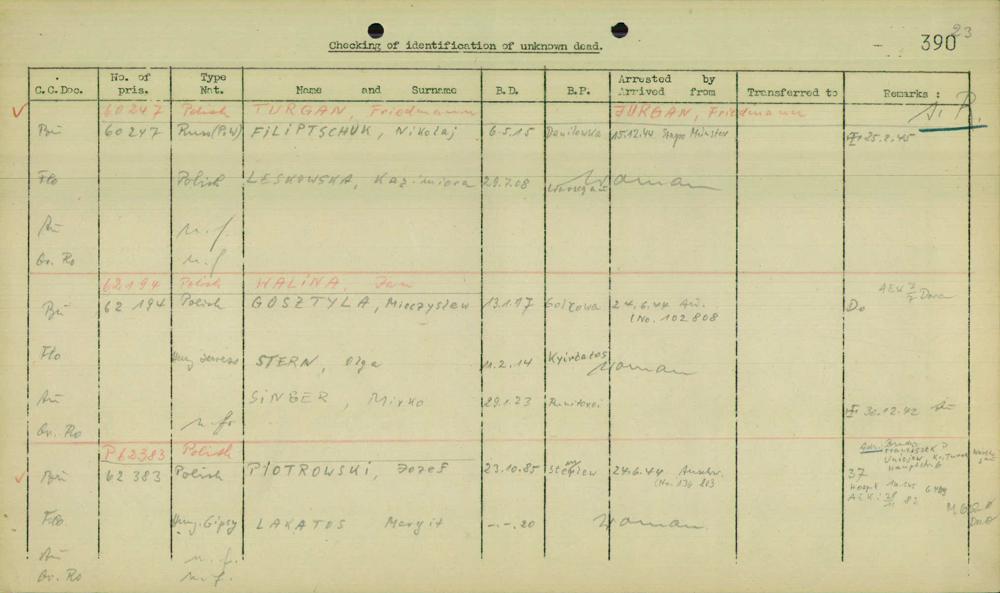 23
390
Checking of identification of unknown dead.
C.C.Doc. No. of pris. Type Nat. Name and Surname B.D. B.P. Arrested by Arrived from Transferred to Remarks :
60247 Polish TURGAN, Friedmann JURGAN, Friedmann
Bu 60247 Russ(Pol) FILIPTSCHUK, Nikolaj 6.5.15 Danilowka 15.12.44 Stapo Münster 25.2.45
Flo Polish LESKOWSKA, Kazimiera 29.7.08 Woman
Au n.f.
Gr. Ro n.f.
62194 Polish WALINA, Jan
Bu 62 194 Polish GOSZTYLA, Mieczyslaw 13.1.17 Golkowa 24.6.44 Au. Do
(No. 102 808
Flo STERN, Olga 11.2.14 Woman
Au SINGER, Mirko 29.1.23 30.12.42 Au
Gr. Ro n.f.
P62383 Polish
Bu 62 383 Polish PIOTROWSKI, Jozef 23.10.85 24.6.44 Auschw. 37
Flo Hung. Gipsy LAKATOS Margit -.-.20 Woman.
Au n.f.
Gr. Ro n.f.